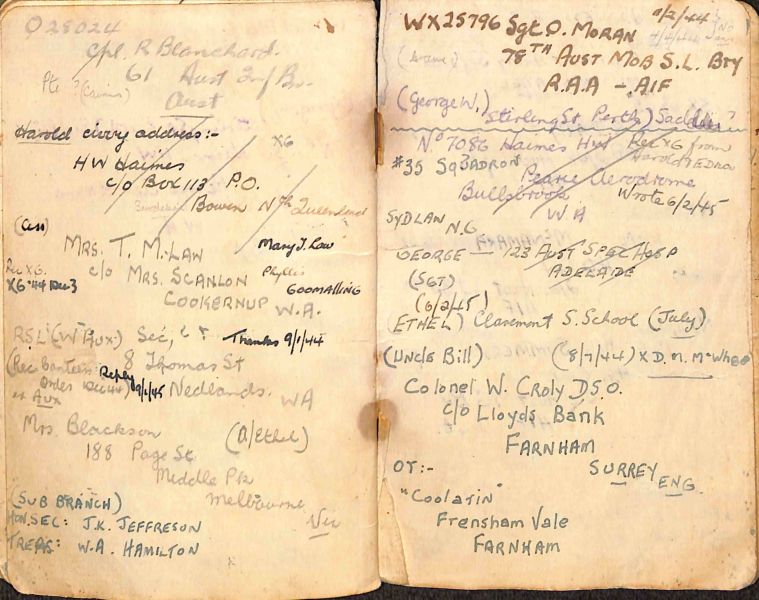 Q28024
Cpl. R Blanchard.
61 Aust Inf Bn.
Pte ? (Cairns)
Aust
Harold civvy address:-
X6
HW Haimes
c/o Box 113 P.O.
Bowen Nth Queensland
(Cess)
MRS. T. M. LAW
Mary J. Law
c/o MRS. SCANLON
Phyllis
GOOMALLING
Rec X6.
X6.44 Dec 3
COOKERNUP W.A.
RSL (W Aux) Sec,
Thanks 9/1/44
8 Thomas St
(Rec Canteen
Order Dec 44)
Reply 9/1/45
Nedlands. WA
ex Aux
Mrs. Blackson
(D/Ethel)
188 Page St
Middle Pk
Melbourne
Vic
(SUB BRANCH)
HON. SEC: J.K. JEFFRESON
TREAS: W.A. HAMILTON
WX25796 Sgt O. MORAN
78TH AUST MOB S.L. Bty
R.A.A - AIF
(George W.)
Stirling St. Perth)
No 7086 Haimes HW
Rec X6 from
#35 SQUADRON
Pearce Aerodrome
Bullsbrook
Wrote 6/2/45
W A
SYD LAW N.G
GEORGE — 123 AUST SPEC HOSP
ADELAIDE
(SGT)
(6/2/45)
(ETHEL) Claremont S. School (July)
(Uncle Bill) (8/7/44) X D.M.
Colonel W. Croly D.S.O.
c/o Lloyds Bank
FARNHAM
SURREY ENG.
OT:-
"Coolatin"
Frensham Vale
FARNHAM